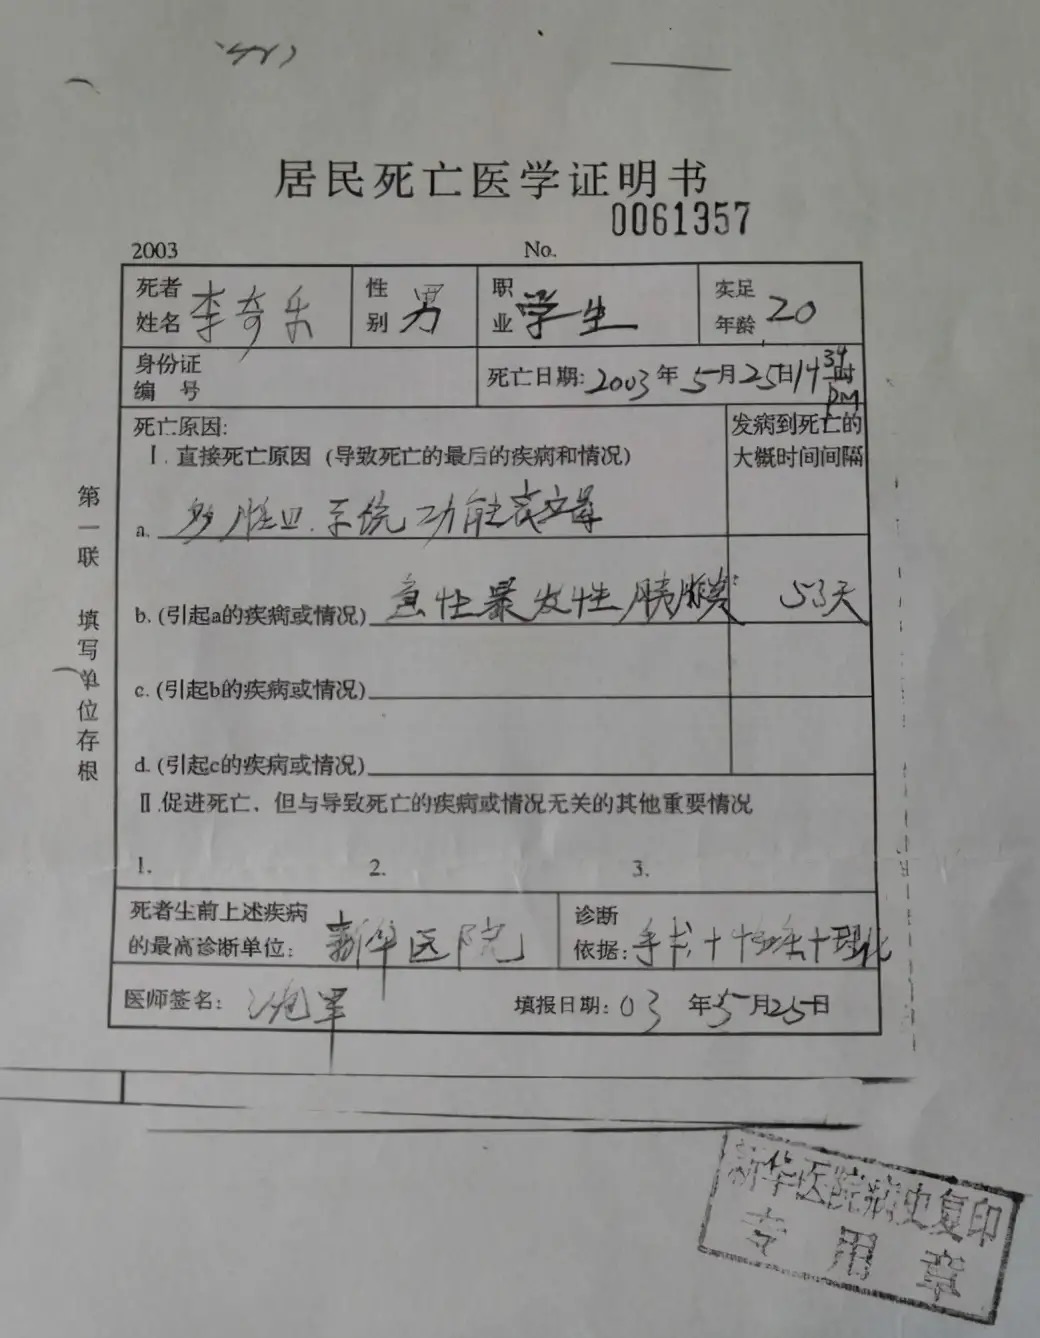 居民死亡医学证明书
0061357
2003 No.
死者姓名 李奇乐 性别 男 职业 学生 实足年龄 20
身份证编号 死亡日期: 2003年5月25日14 34时 PM
死亡原因: 发病到死亡的
Ⅰ.直接死亡原因(导致死亡的最后的疾病和情况) 大概时间间隔
a. 多脏皿.系统功能衰竭
b.(引起a的疾病或情况) 急性暴发性胰腺炎 53天
c.(引起b的疾病或情况)
d.(引起c的疾病或情况)
Ⅱ.促进死亡、但与导致死亡的疾病或情况无关的其他重要情况
1. 2. 3.
死者生前上述疾病 诊断
的最高诊断单位: 新华医院 依据: 手术+ +理化
医师签名: 填报日期: 03年5月25日
第一联 填写单位存根
新华医院病史复印
专用章